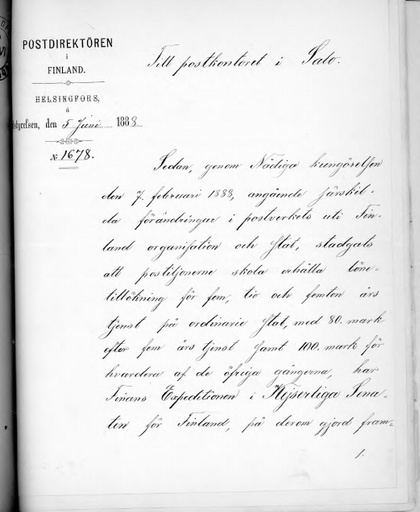 POSTDIREKTÖREN
i
FINLAND.
HELSINGFORS,
å
styrelsen, den 5 Juni 1888.
No 1678.
Till postkontoret i Salo.
Sedan, genom Nådiga kungörelsen
den 7 februari 1888, angående särskil-
da förändringar i postverkets uti Fin-
land organisation och stat, stadgats
att postiljonerne skola erhålla löne-
tillökning för fem, tio och femton års
tjenst på ordinarie stat, med 80 mark
efter fem års tjenst samt 100 mark för
hvardera af de öfriga gångerna, har
Finans Expeditionen i Kejserliga Sena-
ten för Finland, på derom gjord fram-
1.